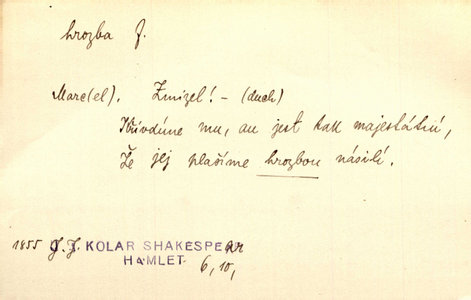 hrozba f.
Marc(el). Zmizel! – (duch)
Křivdíme mu, an jest tak majestátní,
Že jej plašíme hrozbou násilí.
1855 J. J. KOLAR SHAKESPEAR
HAMLET 6, 10,